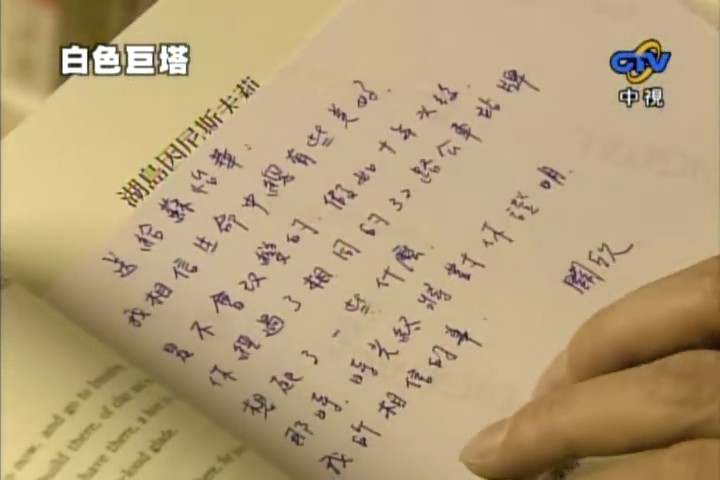 白色巨塔
CTV
中視
湖島因尼斯卡莉
送給蘇怡華:
我相信生命中總有些美好.
是不會改變的.假如十年以後.
你經過了相同的302路公車站牌
想起了一些什麼.
那時.時光終將對你證明.
我所相信的事
關欣
now, and go to Innis
build there, of clay an
have there, a hive
-loud glade.